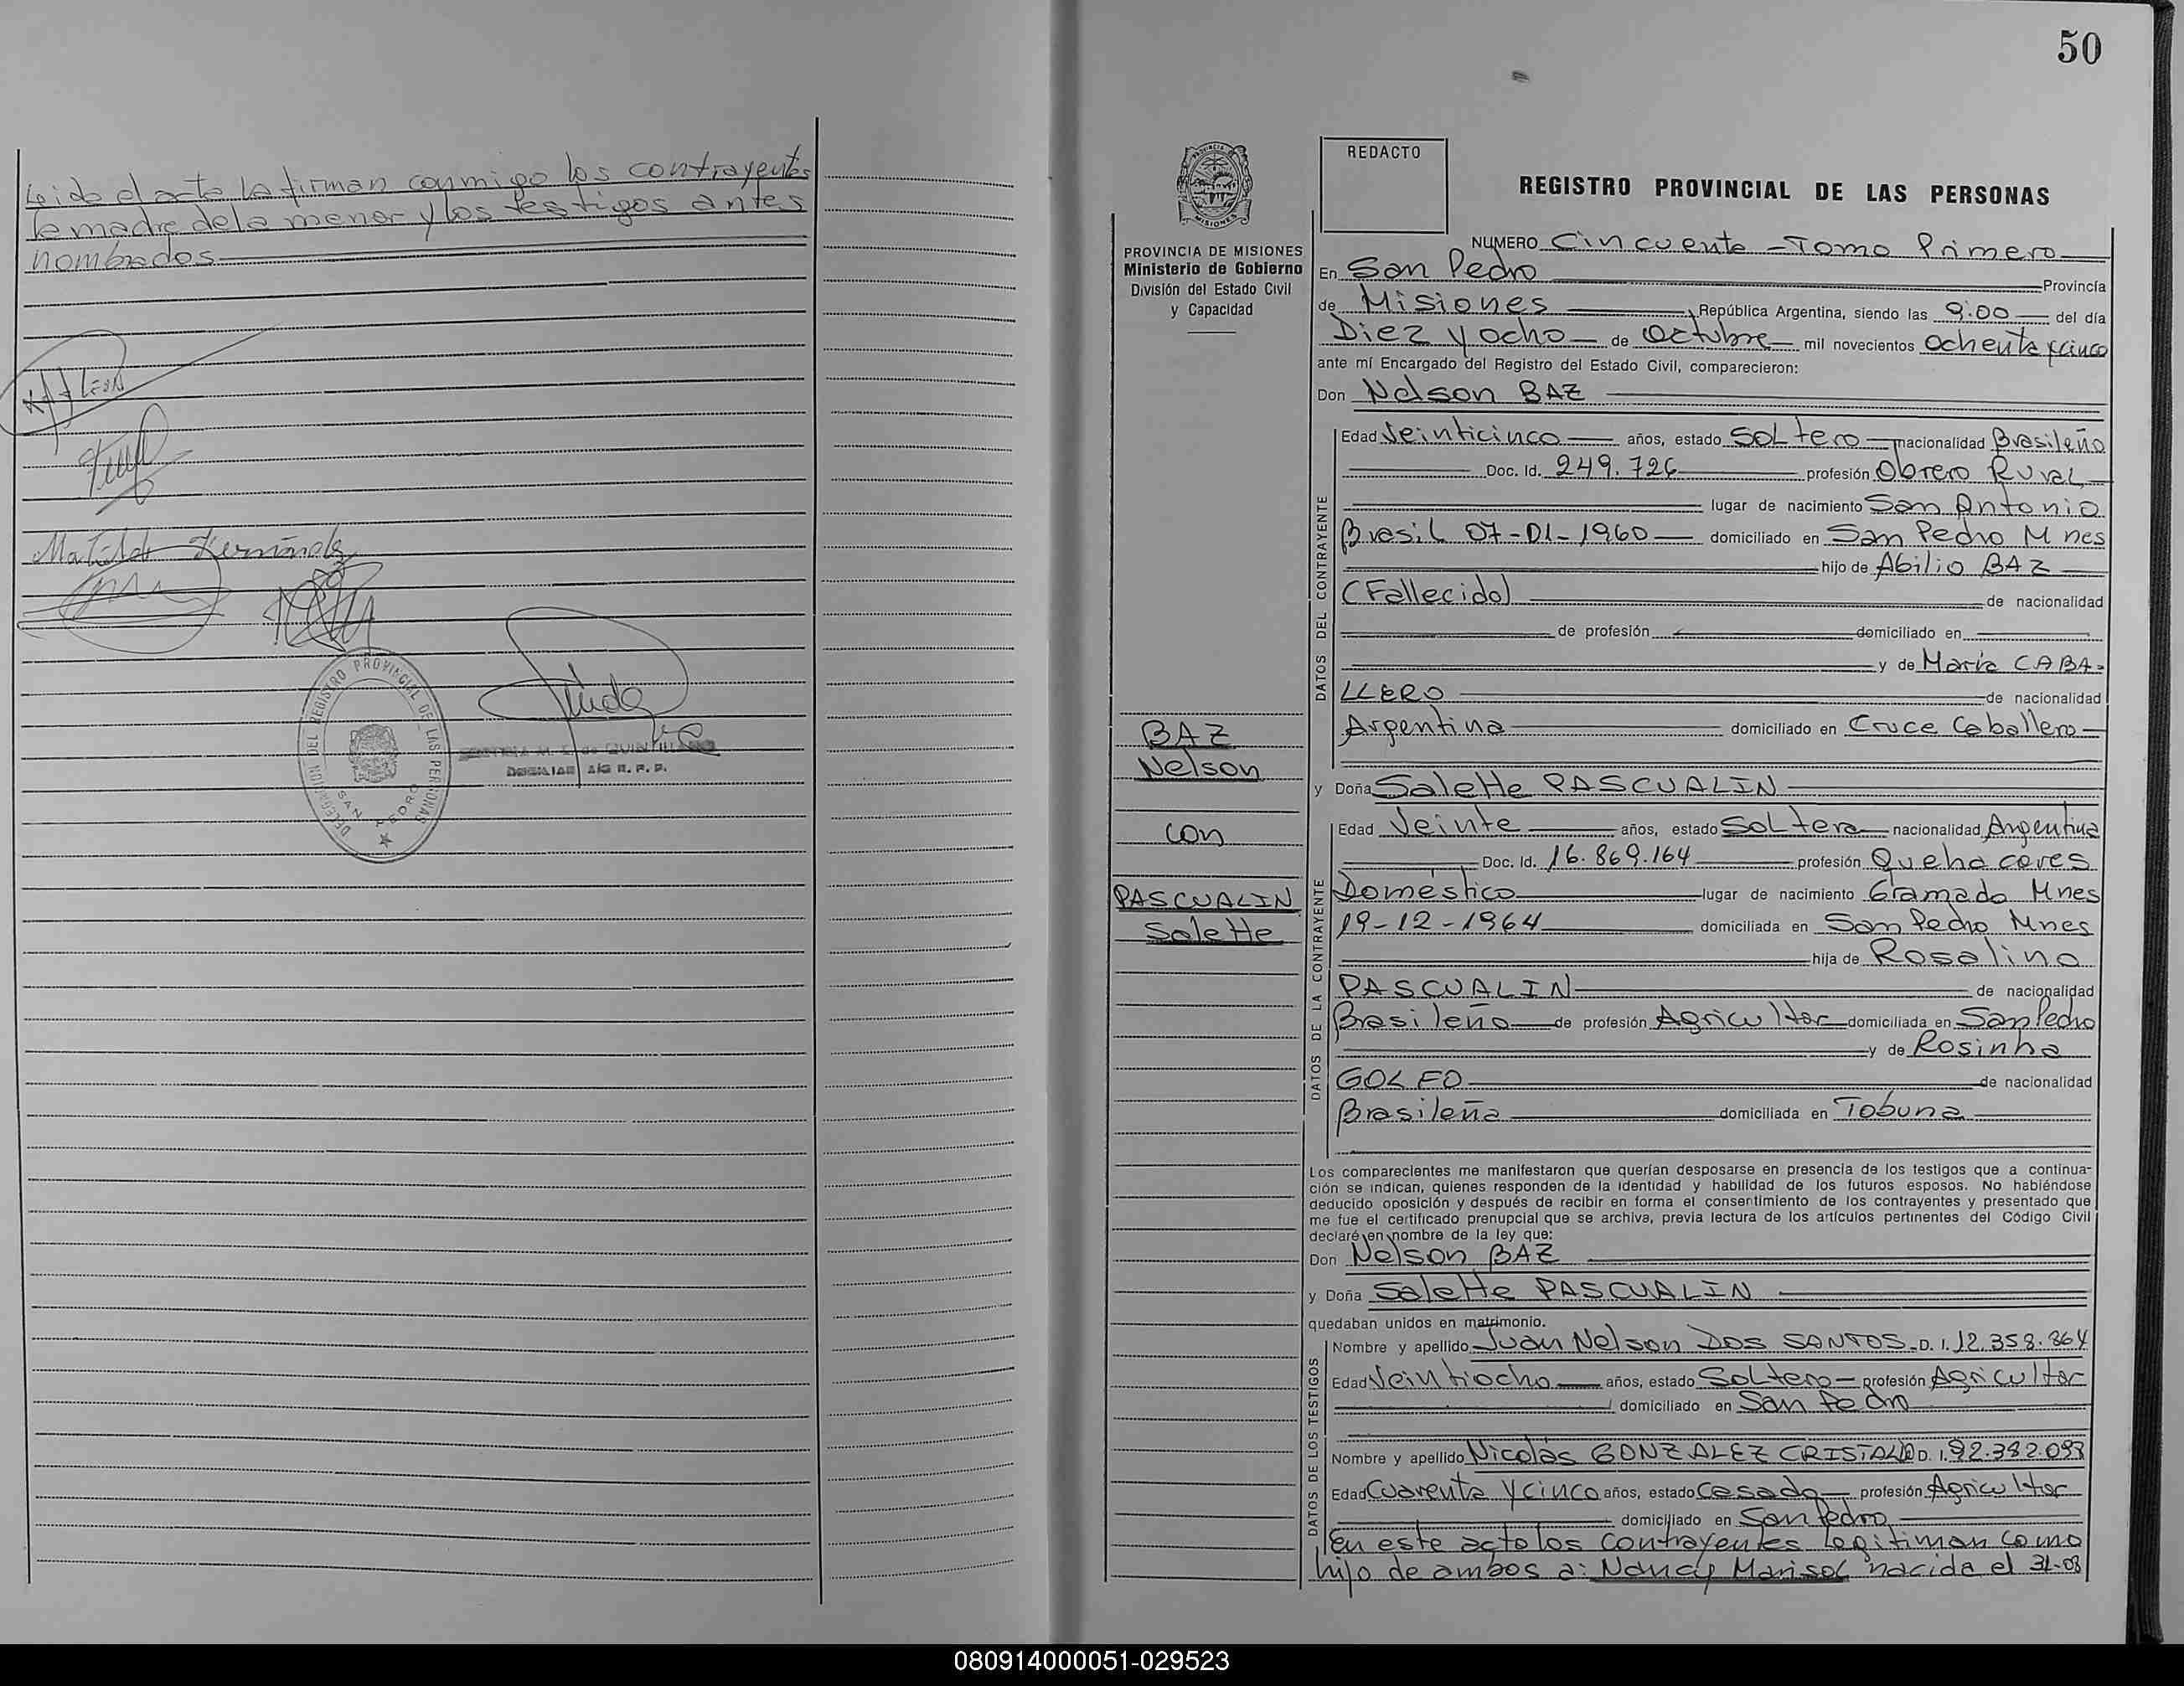 Leido el acta la firman conmigo los contrayentes
la madre de la menor y los testigos antes
nombrados
Matilde
DELEGACION DEL REGISTRO PROVINCIAL DE LAS PERSONAS
SAN PEDRO
50
PROVINCIA DE
MISIONES
REDACTO
REGISTRO PROVINCIAL DE LAS PERSONAS
PROVINCIA DE MISIONES
Ministerio de Gobierno
División del Estado Civil
y Capacidad
BAZ
Nelson
con
PASCUALIN
Salette
NUMERO Cincuenta - Tomo Primero
En San Pedro Provincia
de Misiones, República Argentina, siendo las 9:00 del día
Diez y ocho de Octubre mil novecientos Ochenta y cinco
ante mí Encargado del Registro del Estado Civil, comparecieron:
Don Nelson BAZ
DATOS DEL CONTRAYENTE
Edad Veinticinco años, estado Soltero nacionalidad Brasileño
Doc. Id. 249.726 profesión Obrero Rural
lugar de nacimiento San Antonio
Brasil 07-01-1960 domiciliado en San Pedro Mnes
hijo de Abilio BAZ
(Fallecido) de nacionalidad
de profesión domiciliado en
y de María CABA-
LLERO de nacionalidad
Argentina domiciliado en Cruce Caballero
y Doña Salette PASCUALIN
DATOS DE LA CONTRAYENTE
Edad Veinte años, estado Soltera nacionalidad Argentina
Doc. Id. 16.869.164 profesión Quehaceres
Doméstico lugar de nacimiento Gramado Mnes
19-12-1964 domiciliada en San Pedro Mnes
hija de Rosalino
PASCUALIN de nacionalidad
Brasileño de profesión Agricultor domiciliada en San Pedro
y de Rosinha
GOLFO de nacionalidad
Brasileña domiciliada en Tobuna
Los comparecientes me manifestaron que querían desposarse en presencia de los testigos que a continua-
ción se indican, quienes responden de la identidad y habilidad de los futuros esposos. No habiéndose
deducido oposición y después de recibir en forma el consentimiento de los contrayentes y presentado que
me fue el certificado prenupcial que se archiva, previa lectura de los artículos pertinentes del Código Civil
declaré en nombre de la ley que:
Don Nelson BAZ
y Doña Salette PASCUALIN
quedaban unidos en matrimonio.
DATOS DE LOS TESTIGOS
Nombre y apellido Juan Nelson DOS SANTOS D. I. 12.358.864
Edad Veintiocho años, estado Soltero profesión Agricultor
domiciliado en San Pedro
Nombre y apellido Nicolás GONZALEZ CRISTALDO D. I. 92.382.093
Edad Cuarenta y cinco años, estado Casado profesión Agricultor
domiciliado en San Pedro
En este acto los contrayentes legitiman como
hijo de ambos a: Nancy Marisol nacida el 31-08
080914000051-029523